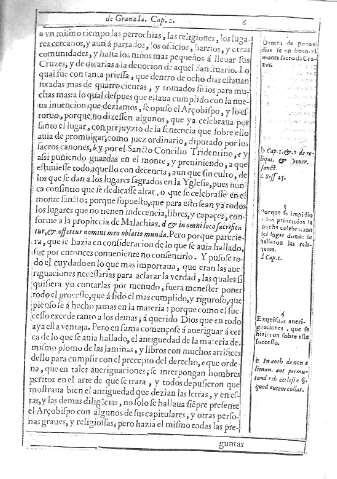 de Granada. Cap. 2. 6
a un mismo tiempo las perrochias, las religiones, los luga-
res cercanos, y aun à partados, los oficios, barrios, y otras
comunidades, y hasta los niños mas pequeños à llevar sus
Cruzes, y de guiarlas à la devocion de aquel santuario. Lo
qual fue con tanta priessa, que dentro de ocho dias estavan
fixadas mas de quatrocientas, y tomados sitios para mu-
chas mas: lo qual despues que estava cumplido con la nue-
va inuencion que deziamos, se opuso el Arçobispo, y lo es-
torvo, porque no diessen algunos, que ya celebrava por
santo el lugar, con prejuyzio de la sentencia que sobre ello
auia de promulgar, como juez ordinario, diputado por los
sacros canones, b y por el Santo Concilio Tridentino, c y
assi poniendo guardas en el monte, y preuiniendo, a que
estuuiesse todo aquello con decencia, aun que sin culto, de
los que se dan a los lugares sagrados en la Yglesia, pues nun-
ca consintio que se dedicasse altar, o que se celebrasse en el
monte santo: porque supuesto, que para esto sean ya todos
los lugares que no tienen indecencia, libres, y capaces, con-
forme a la prophecia de Malachias, d & in omni loco sacrifica-
tur, & offertur nomini meo oblatio munda. Pero porque parecie-
ra, que se hazia en consideracion de lo que se auia hallado,
fue por entonces conueniente no consentirlo. Y puso se to-
do el cuydado en lo que mas importaua, que eran las aue-
riguaciones necessarias para aclarar la verdad, las quales si
quisiera yo contarlas por menudo, fuera menester poner
todo el processo, que à sido el mas cumplido, y riguroso, que
pienso se à hecho jamas en la materia: porque como el suc-
cesso excede tanto a los demas, à querido Dios que en todo
aya ella ventaja. Pero en suma començose à aueriguar à cer-
ca de lo que se auia hallado, el antiguedad de la materia de-
l mismo plomo de las laminas, y libros con muchos artifices
dello para cumplir con el precepto del derecho, e que orde-
na, que en tales aueriguaciones, se interpongan hombres
peritos en el arte de que se trata, y todos depusieron que
mostrauan bien el antiguedad que dezian las letras, y en es-
tas, y las demas diligencias, no solo se hallaua siempre presente
el Arçobispo con algunos de sus capitulares, y otras perso-
nas graues, y religiosas, pero hazia el mismo todas las pre-
guntas
b Cap. 2. & 2. de re-
liquijs, & vener.
sanct.
c Sess. 25.
Porque se impidio
lugar donde se
hallaron las reli-
quias.
d Cap. 1.
6
Exquisitas aueri-
guaciones, que se
hizieron sobre este
successo.